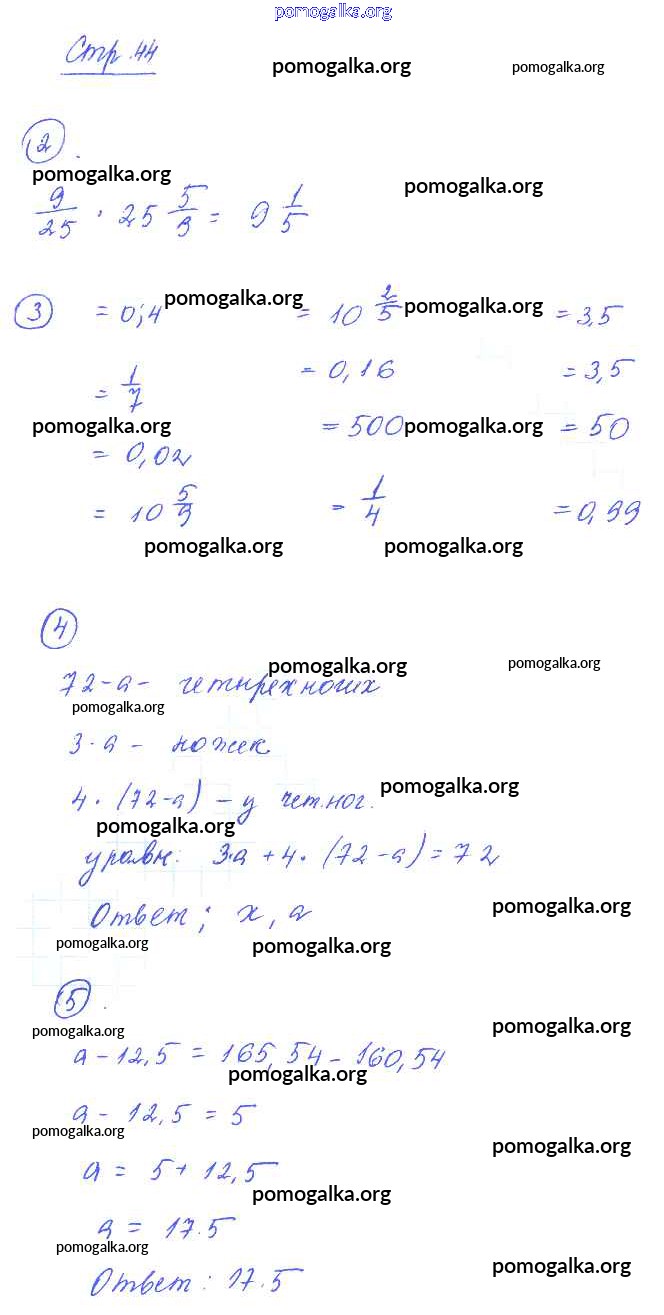 pomogalka.org
Стр. 44
pomogalka.org pomogalka.org
2.
pomogalka.org pomogalka.org
9/25 · 25 5/9 = 9 1/5
3 = 0,4 pomogalka.org = 10 2/5 pomogalka.org = 3,5
= 1/7 = 0,16 = 3,5
pomogalka.org = 500 pomogalka.org = 50
= 0,02
= 10 5/9 = 1/4 = 0,99
pomogalka.org pomogalka.org
4
pomogalka.org pomogalka.org
72-а - четырехногих
pomogalka.org
3·а - ножек
pomogalka.org
4·(72-а) - у чет.ног.
pomogalka.org
уравн: 3·а + 4·(72-а) = 72
pomogalka.org
Ответ; х, а
pomogalka.org pomogalka.org
5.
pomogalka.org pomogalka.org
а - 12,5 = 165,54 - 160,54
pomogalka.org
а - 12,5 = 5
pomogalka.org pomogalka.org
а = 5 + 12,5
pomogalka.org
а = 17.5
pomogalka.org pomogalka.org
Ответ: 17.5